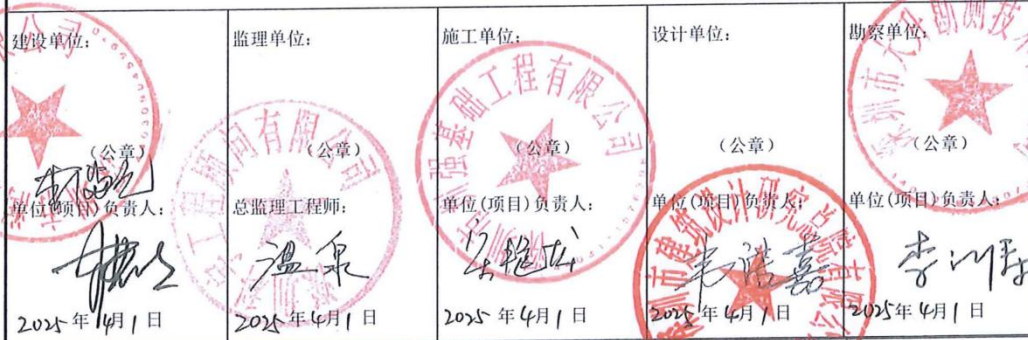 建设单位:
监理单位:
施工单位:
设计单位:
勘察单位:
(公章)
(公章)
(公章)
(公章)
(公章)
单位(项目)负责人:
总监理工程师:
单位(项目)负责人:
单位(项目)负责人:
单位(项目)负责人:
温泉
2025年4月1日
2025年4月1日
2025年4月1日
2025年4月1日
2025年4月1日
公司
工程顾问有限公司
基础工程有限公司
圳市建筑设计研究总院有限公
深圳市大升勘测技术